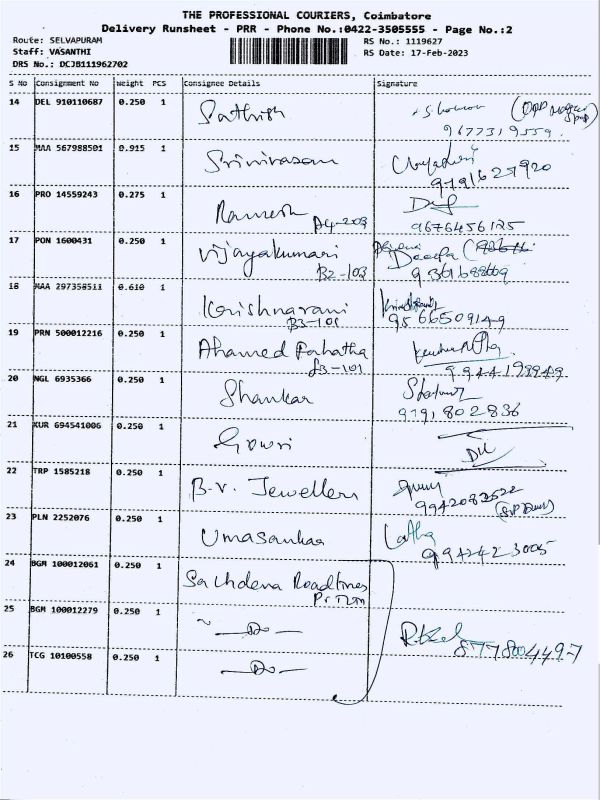 THE PROFESSIONAL COURIERS, Coimbatore
Delivery Runsheet - PRR - Phone No.:0422-3505555 - Page No.:2
Route: SELVAPURAM RS No.: 1119627
Staff: VASANTHI RS Date: 17-Feb-2023
DRS No.: DCJB111962702
S No Consignment No Weight PCS Consignee Details Signature
14 DEL 910110687 0.250 1 Sathish
9677319559
15 MAA 567988501 0.915 1 Srinivasan
9791627920
16 PRO 14559243 0.275 1 Ramesh
9676456125
17 PON 1600431 0.250 1 Vijayakumari
B2-103
18 MAA 297358511 0.610 1 Krishnarani
B3-101 9566509149
19 PRN 500012216 0.250 1 Ahamed Fahatha
B3-101 9944199949
20 NGL 6935366 0.250 1 Shankar
9791802836
21 KUR 694541006 0.250 1 Gowri
22 TRP 1585218 0.250 1 B.V. Jewellers
9942082522
23 PLN 2252076 0.250 1 Umasankar Latha
9942423005
24 BGM 100012061 0.250 1 Sachdeva Roadlines
25 BGM 100012279 0.250 1 -Do-
8778004497
26 TCG 10100558 0.250 1 -Do-